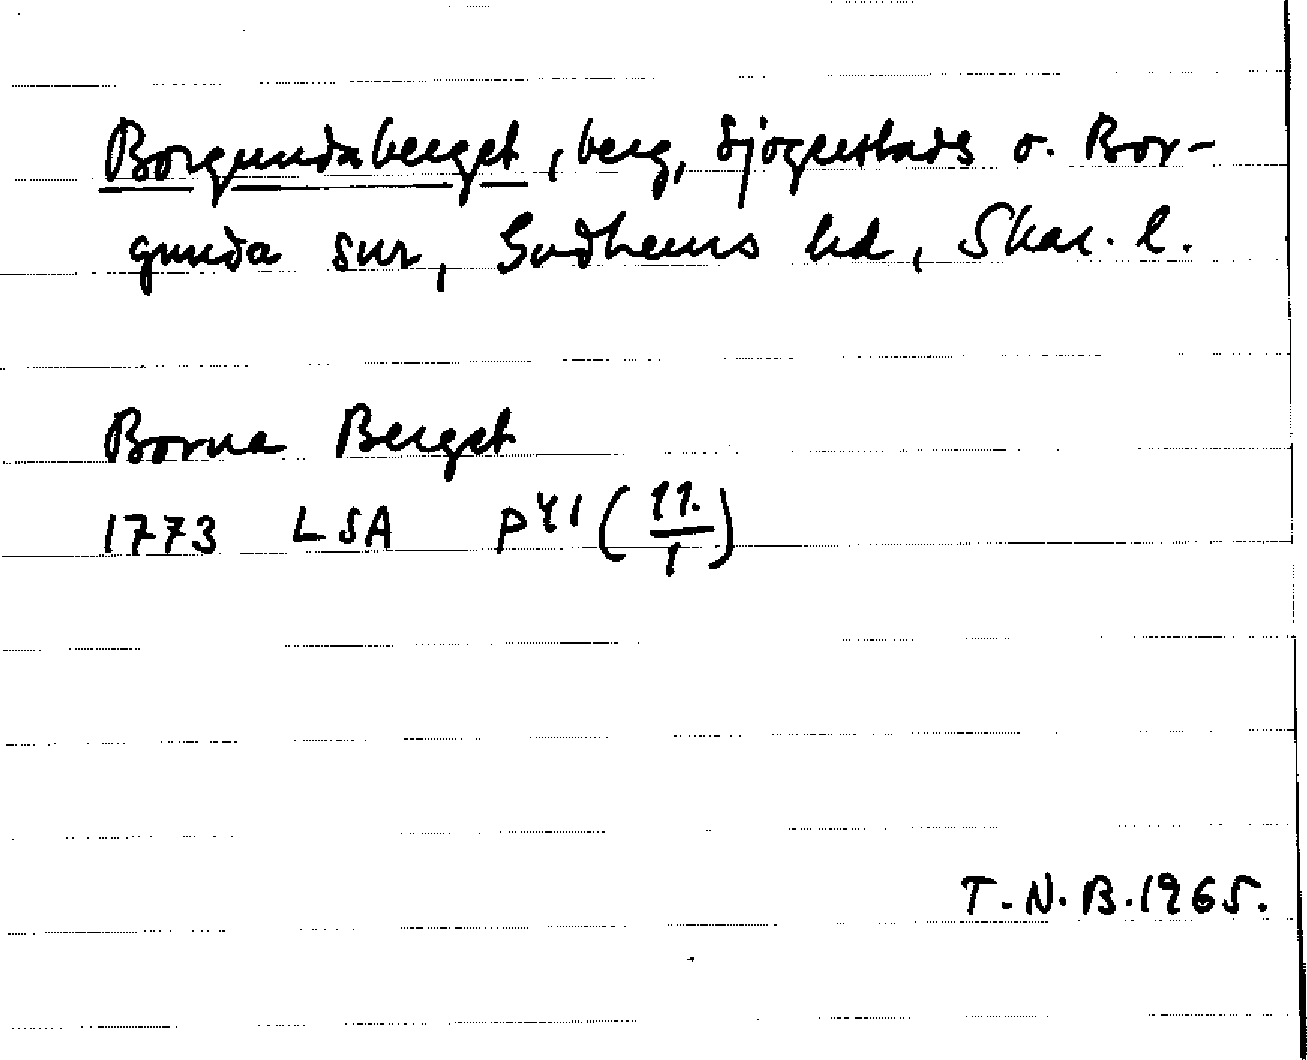 Borgundaberget, berg, Sjogerstads o. Bor-
gunda snr, Gudhems hd, Skar. l.
Borna Berget
1773 LSA P41 (11./1)
T.N.B. 1965.